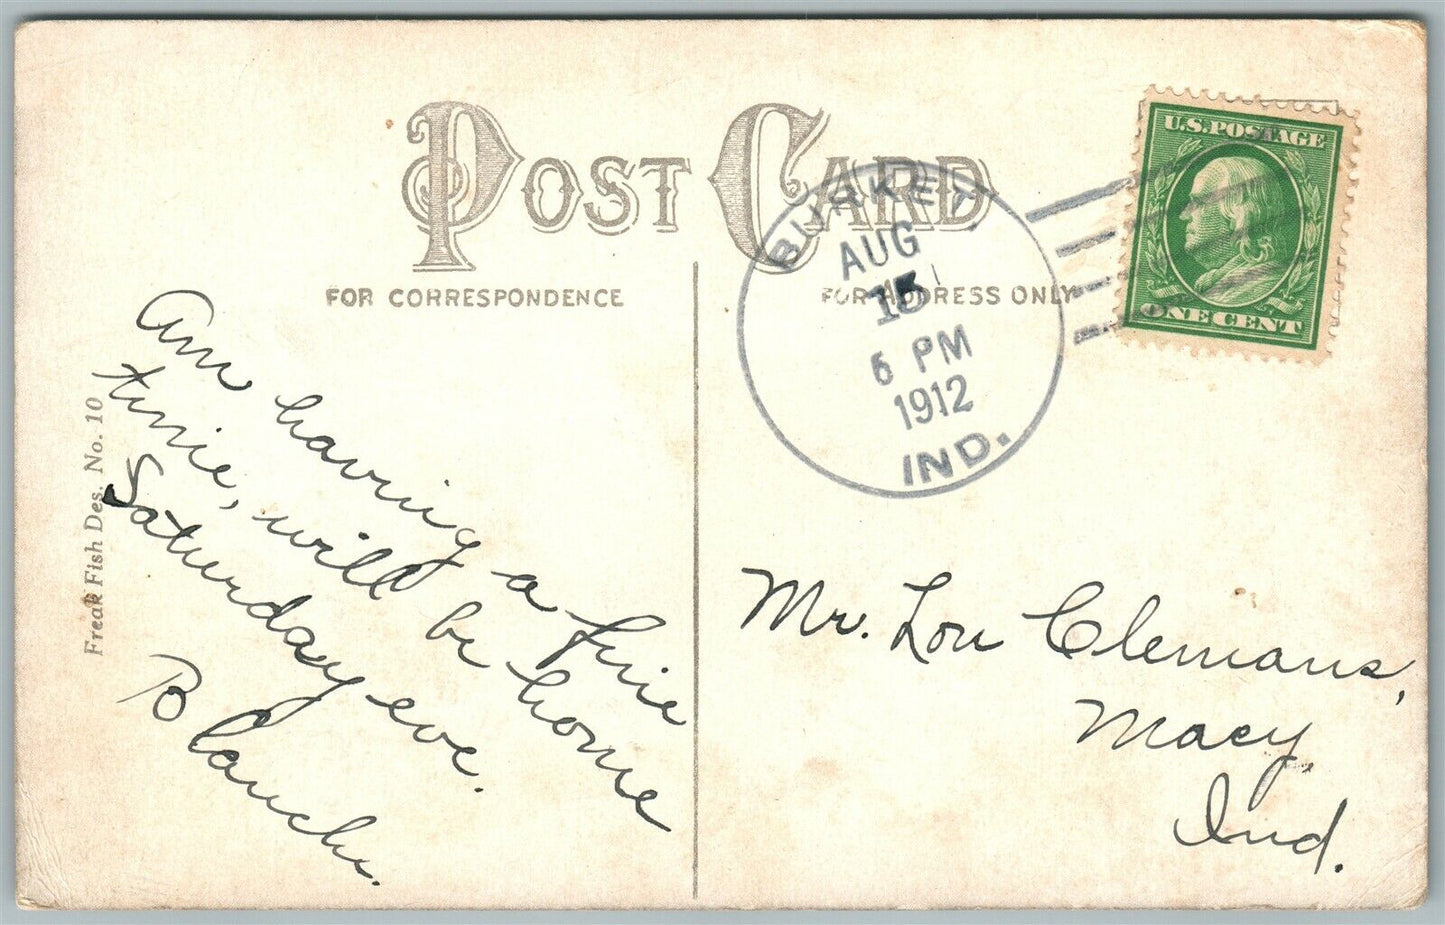 POST CARD
FOR CORRESPONDENCE
FOR ADDRESS ONLY
U.S. POSTAGE
ONE CENT
BURKET,
AUG
15
6 PM
1912
IND.
Freak Fish Des. No. 10
Am having a fine
time, will be home
Saturday eve.
Blanche.
Mr. Lou Clemans,
Macy
Ind.